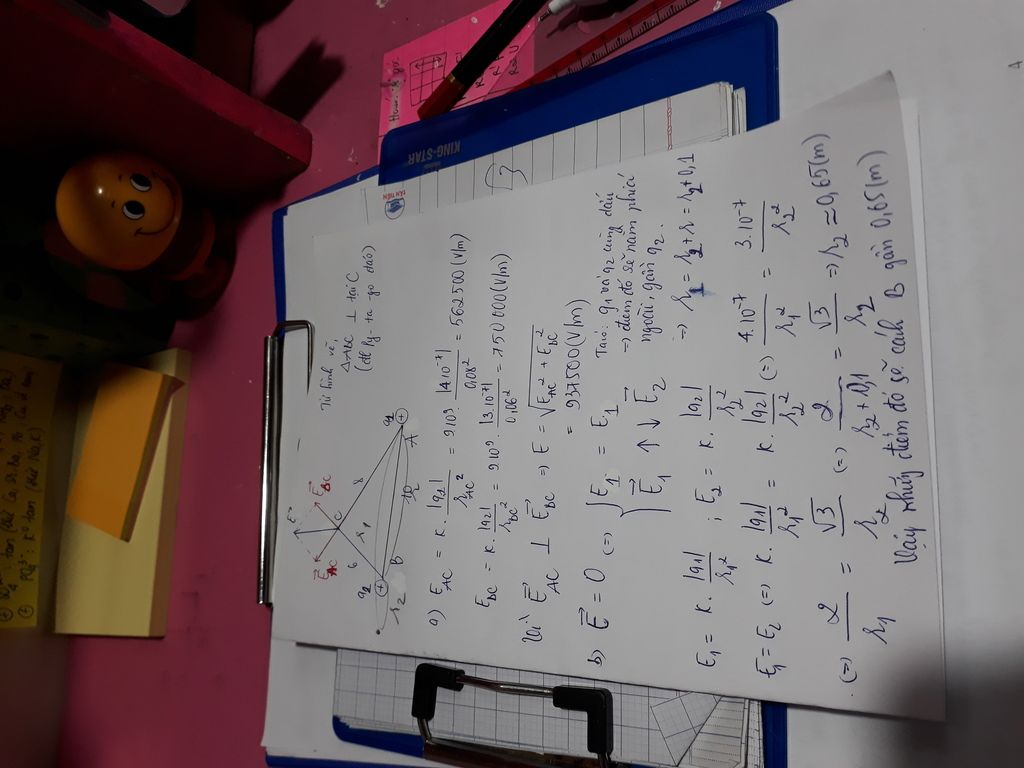 Từ hình vẽ,
ΔABC ⊥ tại C
(đl Py-ta-go đảo)
E⃗AC
E⃗BC
C
6
8
q2
q1
B
10
A
r2
r1
a) EAC = K. |q1|/rAC² = 9.10⁹. |4.10⁻⁷|/0,08² = 562500 (V/m)
EBC = K. |q2|/rBC² = 9.10⁹. |3.10⁻⁷|/0,06² = 750000 (V/m)
Vì E⃗AC ⊥ E⃗BC => E = √(EAC² + EBC²)
= 937500 (V/m)
b) E⃗ = 0 (=) { E1 = E1
E⃗1 ↑↓ E⃗2
Ta có: q1 và q2 cùng dấu
=> điểm đó sẽ nằm phía
ngoài, gần q2.
=> r1 = r2 + r = r2 + 0,1
E1 = K. |q1|/r1² ; E2 = K. |q2|/r2²
E1 = E2 (=) K. |q1|/r1² = K. |q2|/r2² (=) 4.10⁻⁷/r1² = 3.10⁻⁷/r2²
(=) 2/r1 = √3/r2 (=) 2/(r2 + 0,1) = √3/r2 => r2 ≈ 0,65 (m)
Vậy những điểm đó sẽ cách B gần 0,65 (m)
KING-STAR
TÂN TIẾN